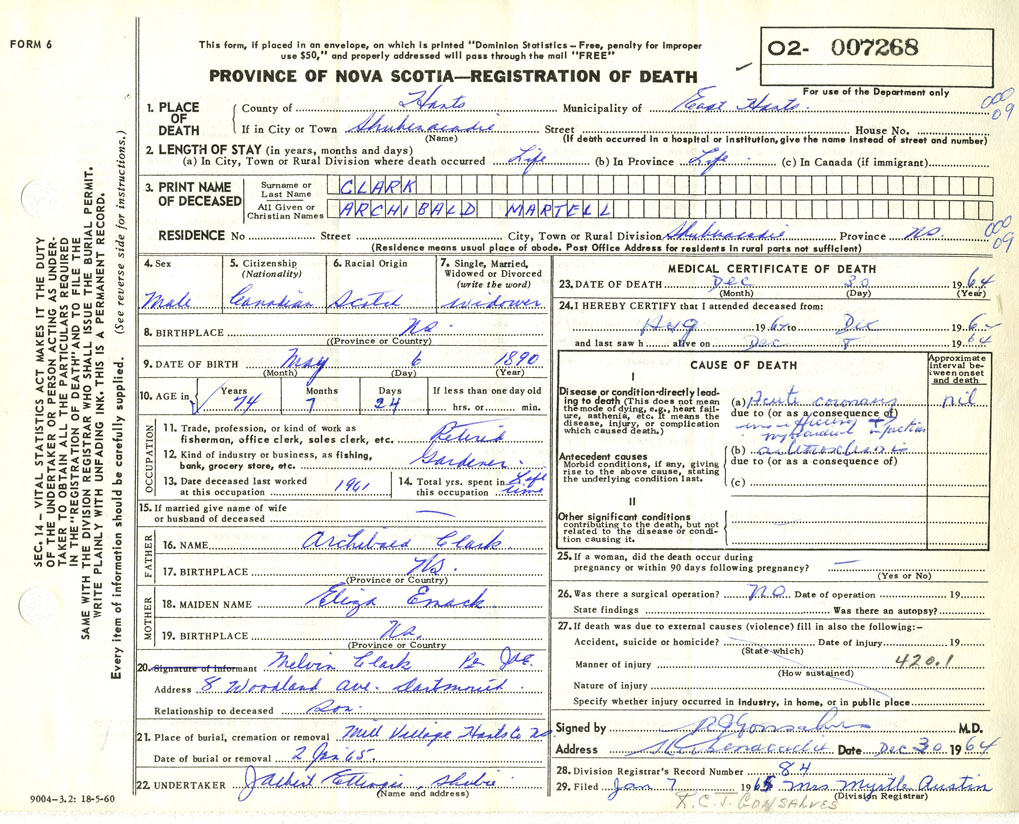 FORM 6
This form, if placed in an envelope, on which is printed "Dominion Statistics—Free, penalty for improper
use $50," and properly addressed will pass through the mail "FREE"
O2- 007268
PROVINCE OF NOVA SCOTIA—REGISTRATION OF DEATH
For use of the Department only
1. PLACE OF DEATH
County of Hants Municipality of East Hants
000
09
If in City or Town Shubenacadie Street House No.
(Name) (If death occurred in a hospital or institution, give the name instead of street and number)
2. LENGTH OF STAY (in years, months and days)
(a) In City, Town or Rural Division where death occurred Life (b) In Province Life (c) In Canada (if immigrant)
3. PRINT NAME OF DECEASED
Surname or Last Name CLARK
All Given or Christian Names ARCHIBALD MARTELL
RESIDENCE No Street City, Town or Rural Division Shubenacadie Province N.S.
000
09
(Residence means usual place of abode. Post Office Address for residents in rural parts not sufficient)
SEC. 14 — VITAL STATISTICS ACT MAKES IT THE DUTY
OF THE UNDERTAKER OR PERSON ACTING AS UNDER-
TAKER TO OBTAIN ALL THE PARTICULARS REQUIRED
IN THE "REGISTRATION OF DEATH" AND TO FILE THE
SAME WITH THE DIVISION REGISTRAR WHO SHALL ISSUE THE BURIAL PERMIT.
WRITE PLAINLY WITH UNFADING INK. THIS IS A PERMANENT RECORD.
Every item of information should be carefully supplied. (See reverse side for instructions.)
4. Sex
Male
5. Citizenship
(Nationality)
Canadian
6. Racial Origin
Scotch
7. Single, Married,
Widowed or Divorced
(write the word)
Widower
8. BIRTHPLACE N.S.
((Province or Country)
9. DATE OF BIRTH May 6 1890
(Month) (Day) (Year)
10. AGE in
Years Months Days If less than one day old
74 7 24 hrs. or min.
OCCUPATION
11. Trade, profession, or kind of work as
fisherman, office clerk, sales clerk, etc. Retired
12. Kind of industry or business, as fishing,
bank, grocery store, etc. Gardener
13. Date deceased last worked
at this occupation 1961
14. Total yrs. spent in
this occupation Life time
15. If married give name of wife
or husband of deceased —
FATHER
16. NAME Archibald Clark
17. BIRTHPLACE N.S.
(Province or Country)
MOTHER
18. MAIDEN NAME Eliza Enack
19. BIRTHPLACE N.S.
(Province or Country
20. Signature of Informant Melvin Clark Per J.A.E.
Address 8 Woodland Ave. Dartmouth
Relationship to deceased Son
21. Place of burial, cremation or removal Mill Village Hants Co NS
Date of burial or removal 2 Jan 65
22. UNDERTAKER Shubie
(Name and address)
MEDICAL CERTIFICATE OF DEATH
23. DATE OF DEATH Dec 30 1964
(Month) (Day) (Year)
24. I HEREBY CERTIFY that I attended deceased from:
Aug 196 to Dec 196
and last saw h alive on Dec 1964
CAUSE OF DEATH
Approximate
interval be-
tween onset
and death
I
Disease or condition directly lead-
ing to death (This does not mean
the mode of dying, e.g., heart fail-
ure, asthenia, etc. It means the
disease, injury, or complication
which caused death.)
(a) Acute coronary nil
due to (or as a consequence of)
myocardial
Antecedent causes
Morbid conditions, if any, giving
rise to the above cause, stating
the underlying condition last.
(b)
due to (or as a consequence of)
(c)
II
Other significant conditions
contributing to the death, but not
related to the disease or condi-
tion causing it.
25. If a woman, did the death occur during
pregnancy or within 90 days following pregnancy? —
(Yes or No)
26. Was there a surgical operation? NO Date of operation 19
State findings Was there an autopsy?
27. If death was due to external causes (violence) fill in also the following:-
Accident, suicide or homicide? Date of injury 19
(State which)
Manner of injury 420.1
(How sustained)
Nature of injury
Specify whether injury occurred in industry, in home, or in public place
Signed by R J Gonsalves M.D.
Address Shubenacadie Date Dec 30 1964
28. Division Registrar's Record Number 84
29. Filed Jan 7 1965 Mrs Myrtle Austin
(Division Registrar)
R.C.J. GONSALVES
9004-3.2: 18-5-60